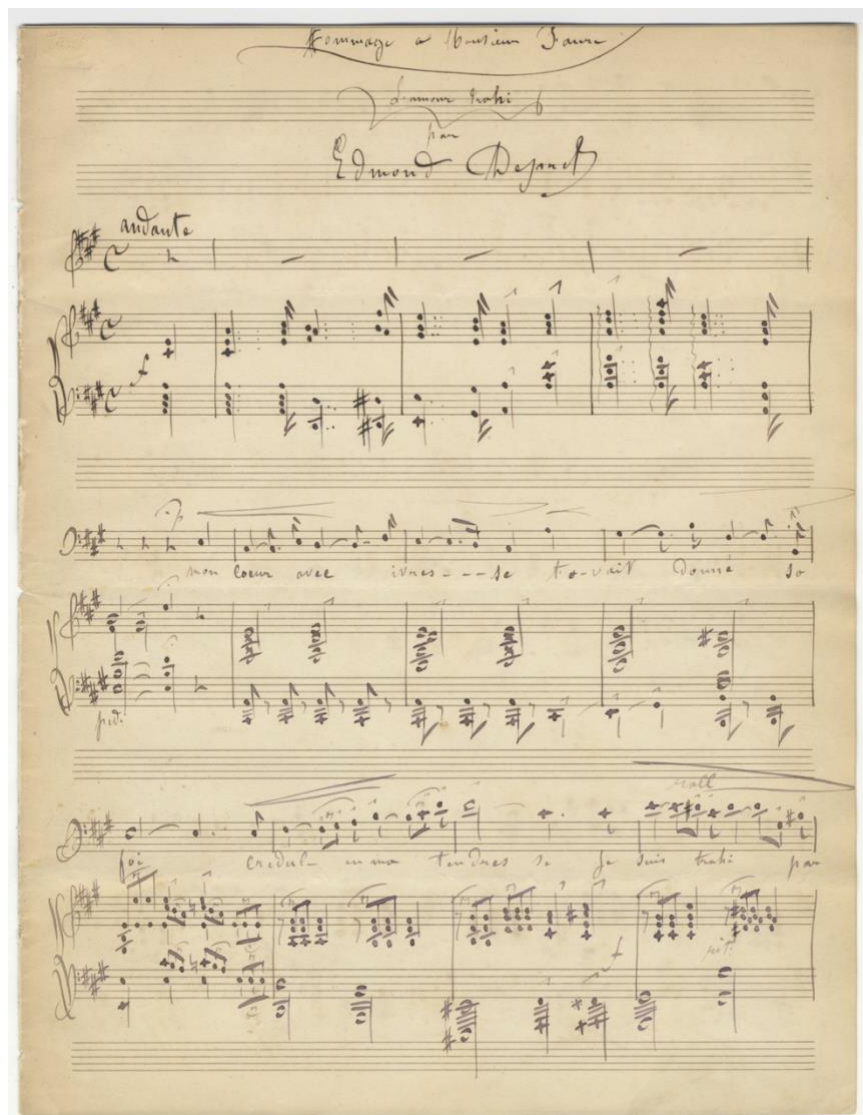 Hommage a Monsieur Faure
L'amour trahi
par
Edmond
andante
f
p
mon coeur avec ivres - - - se t'a-vait donné sa
ped.
rall
foi credul- en ma tendres se Je suis trahi par
f
rit.